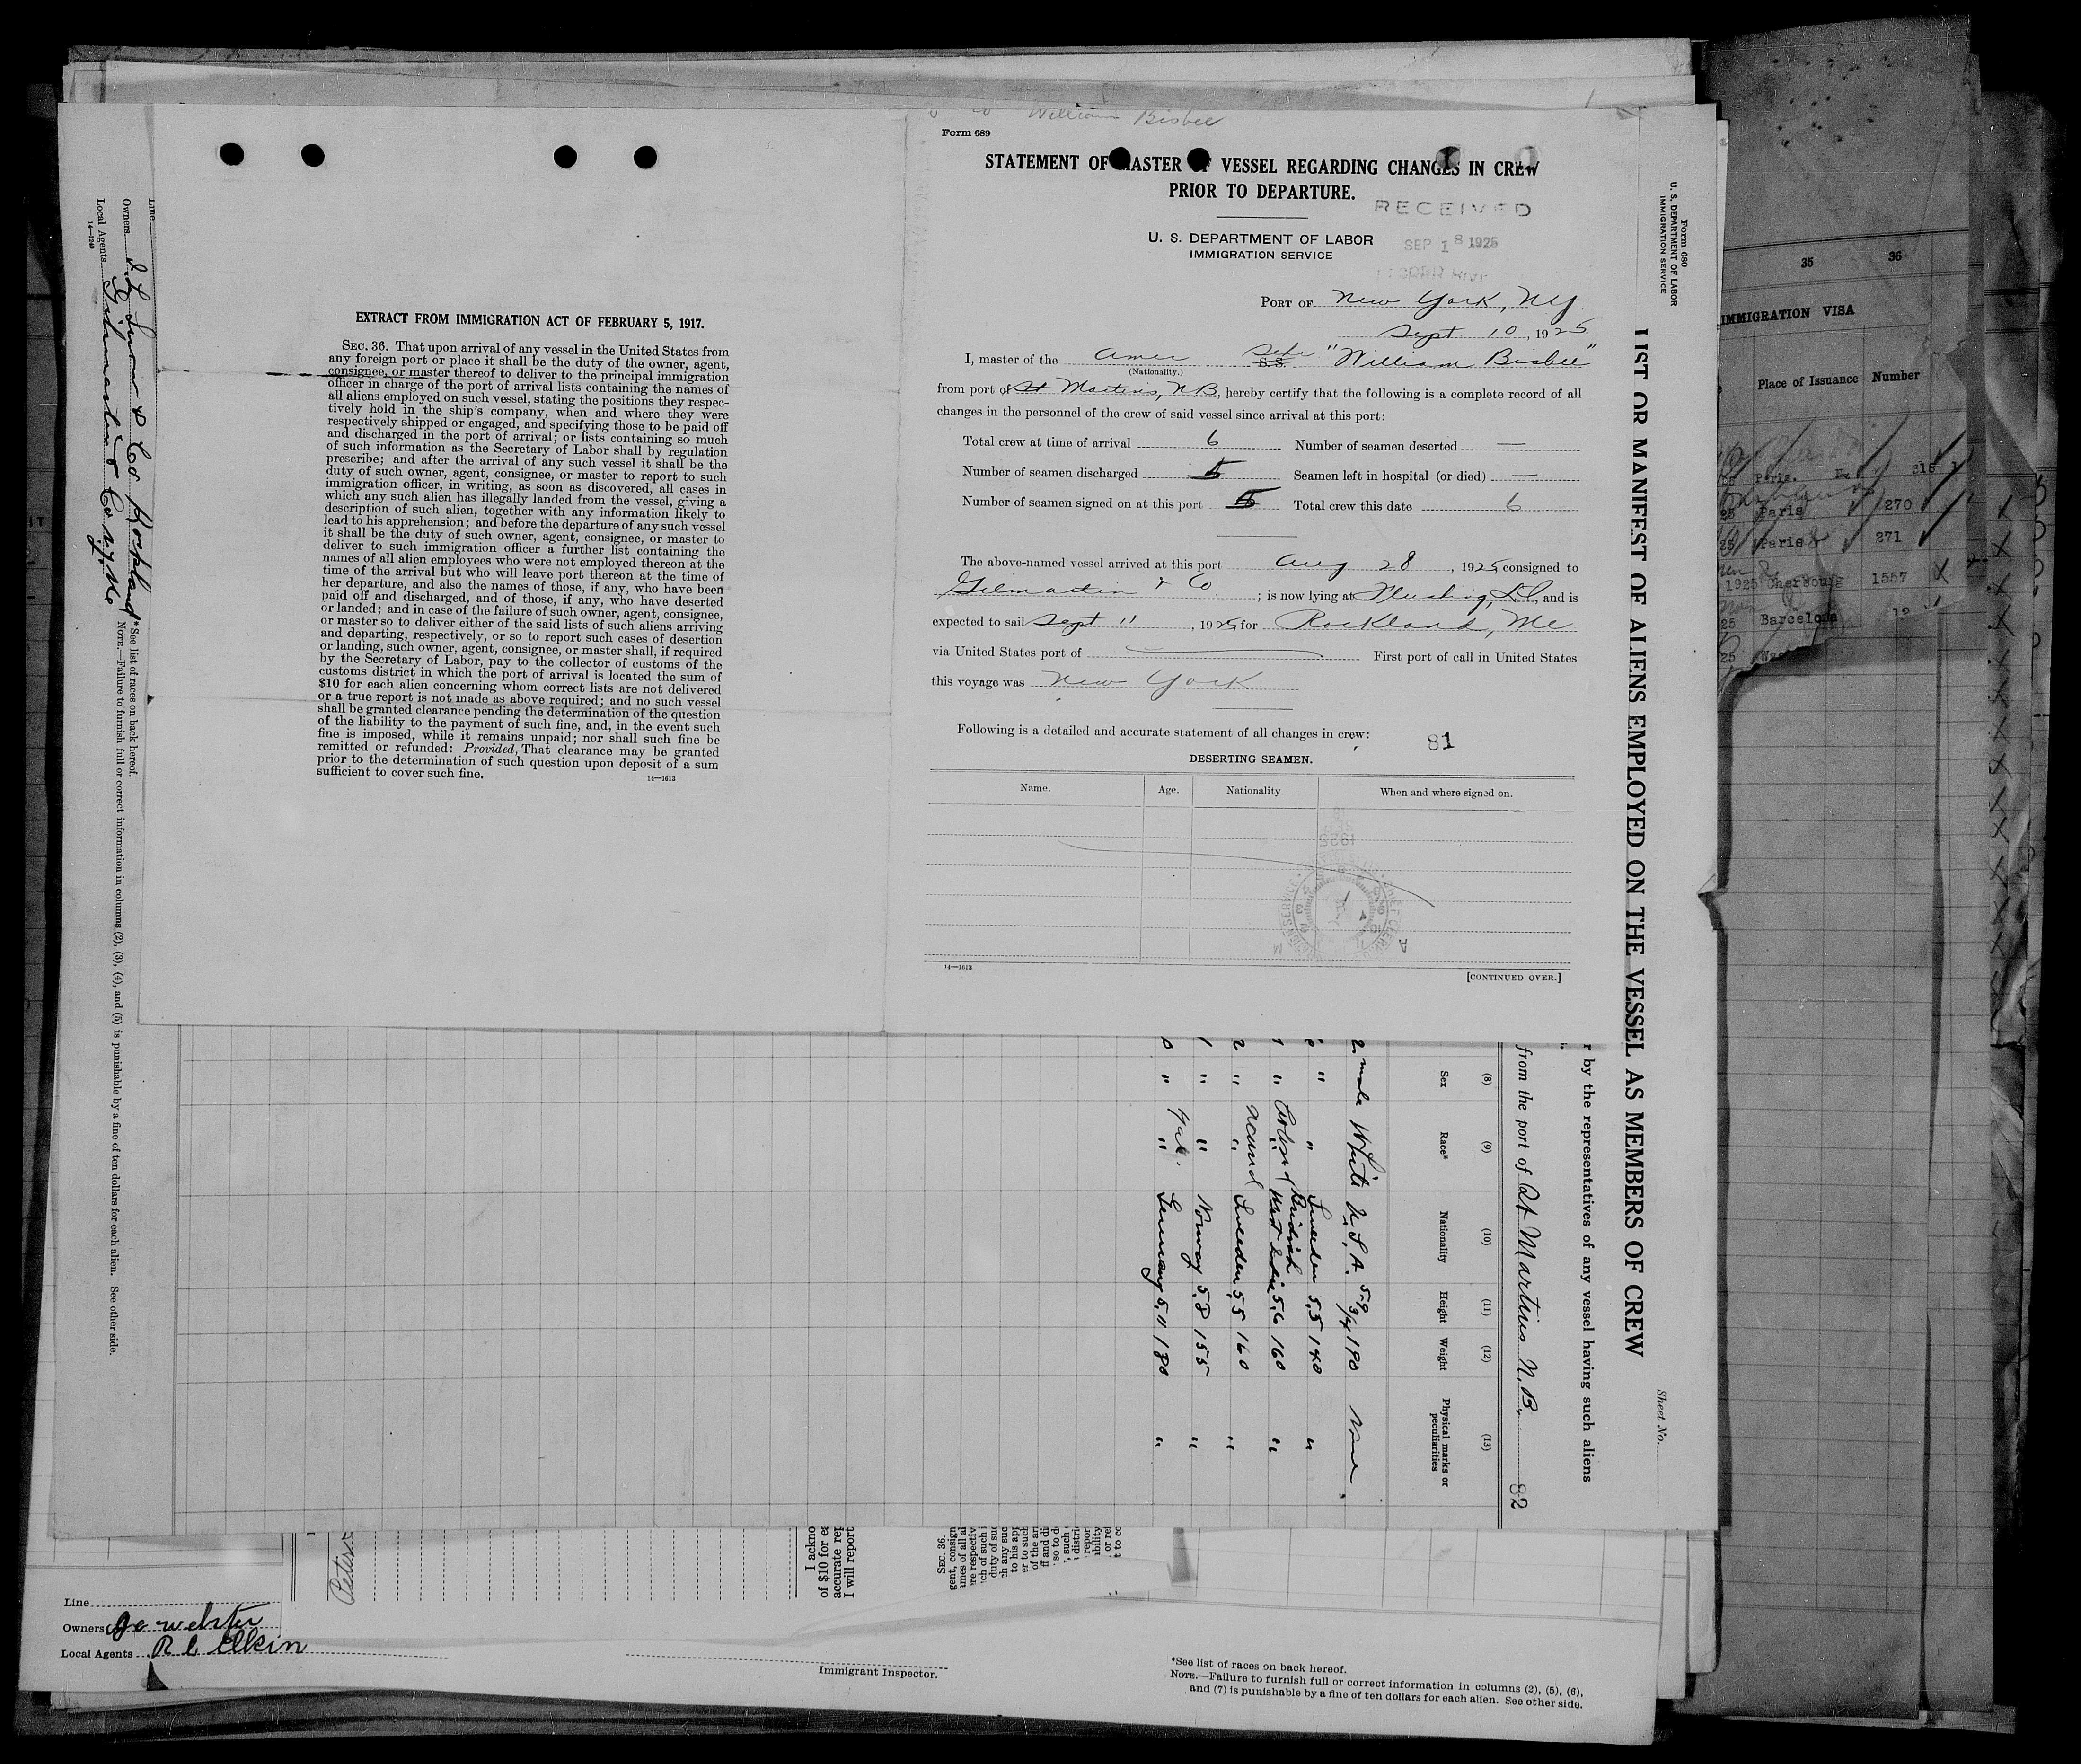 William Bisbee
Form 689
STATEMENT OF MASTER OF VESSEL REGARDING CHANGES IN CREW
PRIOR TO DEPARTURE.
RECEIVED
SEP 18 1925
U. S. DEPARTMENT OF LABOR
IMMIGRATION SERVICE
PORT OF New York, NY.
Sept 10, 1925
I, master of the Amer Schr S.S. "William Bisbee"
(Nationality.)
from port of St Martins, NB, hereby certify that the following is a complete record of all
changes in the personnel of the crew of said vessel since arrival at this port:
Total crew at time of arrival 6 Number of seamen deserted —
Number of seamen discharged 5 Seamen left in hospital (or died) —
Number of seamen signed on at this port 5 Total crew this date 6
The above-named vessel arrived at this port Aug 28, 1925, consigned to
Gilmartin & Co; is now lying at Flushing, LI, and is
expected to sail Sept 11, 1925, for Rockland, Me
via United States port of First port of call in United States
this voyage was New York
Following is a detailed and accurate statement of all changes in crew:
81
DESERTING SEAMEN.
Name. Age. Nationality When and where signed on.
14—1613
[CONTINUED OVER.]
EXTRACT FROM IMMIGRATION ACT OF FEBRUARY 5, 1917.
SEC. 36. That upon arrival of any vessel in the United States from
any foreign port or place it shall be the duty of the owner, agent,
consignee, or master thereof to deliver to the principal immigration
officer in charge of the port of arrival lists containing the names of
all aliens employed on such vessel, stating the positions they respec-
tively hold in the ship's company, when and where they were
respectively shipped or engaged, and specifying those to be paid off
and discharged in the port of arrival; or lists containing so much
of such information as the Secretary of Labor shall by regulation
prescribe; and after the arrival of any such vessel it shall be the
duty of such owner, agent, consignee, or master to report to such
immigration officer, in writing, as soon as discovered, all cases in
which any such alien has illegally landed from the vessel, giving a
description of such alien, together with any information likely to
lead to his apprehension; and before the departure of any such vessel
it shall be the duty of such owner, agent, consignee, or master to
deliver to such immigration officer a further list containing the
names of all alien employees who were not employed thereon at the
time of the arrival but who will leave port thereon at the time of
her departure, and also the names of those, if any, who have been
paid off and discharged, and of those, if any, who have deserted
or landed; and in case of the failure of such owner, agent, consignee,
or master so to deliver either of the said lists of such aliens arriving
and departing, respectively, or so to report such cases of desertion
or landing, such owner, agent, consignee, or master shall, if required
by the Secretary of Labor, pay to the collector of customs of the
customs district in which the port of arrival is located the sum of
$10 for each alien concerning whom correct lists are not delivered
or a true report is not made as above required; and no such vessel
shall be granted clearance pending the determination of the question
of the liability to the payment of such fine, and, in the event such
fine is imposed, while it remains unpaid; nor shall such fine be
remitted or refunded: Provided, That clearance may be granted
prior to the determination of such question upon deposit of a sum
sufficient to cover such fine.
14—1613
Form 680
U. S. DEPARTMENT OF LABOR
IMMIGRATION SERVICE
LIST OR MANIFEST OF ALIENS EMPLOYED ON THE VESSEL AS MEMBERS OF CREW
Sheet No.
r by the representatives of any vessel having such aliens
from the port of St Martins N.B. 82
(8) (9) (10) (11) (12) (13)
Sex Race* Nationality Height Weight Physical marks or peculiarities
male White U.S.A. 5-9 3/4 190 None
" " Sweden 5,5 140 "
" British West 5,6 160 "
" " Sweden 5,5 160 "
" " Norway 5,8 155 "
" " Germany 5,11 180 "
Line
Owners & Co Rockland
Local Agents Gilmartin & Co
14—1240
*See list of races on back hereof.
NOTE.—Failure to furnish full or correct information in columns (2), (3), (4), and (5) is punishable by a fine of ten dollars for each alien. See other side.
35 36
IMMIGRATION VISA
Place of Issuance Number
Paris. 315
Paris 270
Paris 271
1925 Cherbourg 1557
25 Barcelona
I ackno
of $10 for ea
accurate rep
I will report
SEC. 36.
Line
Owners webster
Local Agents R C Elkin
Immigrant Inspector.
*See list of races on back hereof.
NOTE.—Failure to furnish full or correct information in columns (2), (5), (6),
and (7) is punishable by a fine of ten dollars for each alien. See other side.